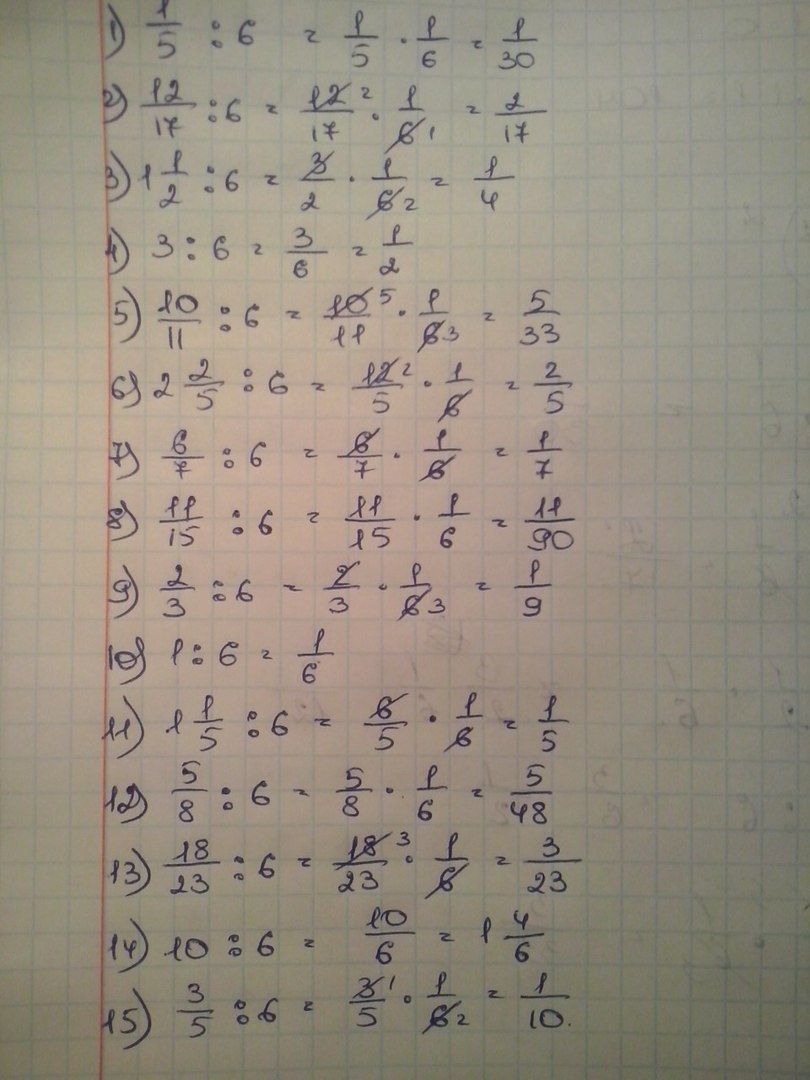 1) 1/5 : 6 = 1/5 · 1/6 = 1/30
2) 12/17 : 6 = 12 2/17 · 1/6 1 = 2/17
3) 1 1/2 : 6 = 3/2 · 1/6 2 = 1/4
4) 3 : 6 = 3/6 = 1/2
5) 10/11 : 6 = 10 5/11 · 1/6 3 = 5/33
6) 2 2/5 : 6 = 12 2/5 · 1/6 = 2/5
7) 6/7 : 6 = 6/7 · 1/6 = 1/7
8) 11/15 : 6 = 11/15 · 1/6 = 11/90
9) 2/3 : 6 = 2/3 · 1/6 3 = 1/9
10) 1 : 6 = 1/6
11) 1 1/5 : 6 = 6/5 · 1/6 = 1/5
12) 5/8 : 6 = 5/8 · 1/6 = 5/48
13) 18/23 : 6 = 18 3/23 · 1/6 = 3/23
14) 10 : 6 = 10/6 = 1 4/6
15) 3/5 : 6 = 3 1/5 · 1/6 2 = 1/10.